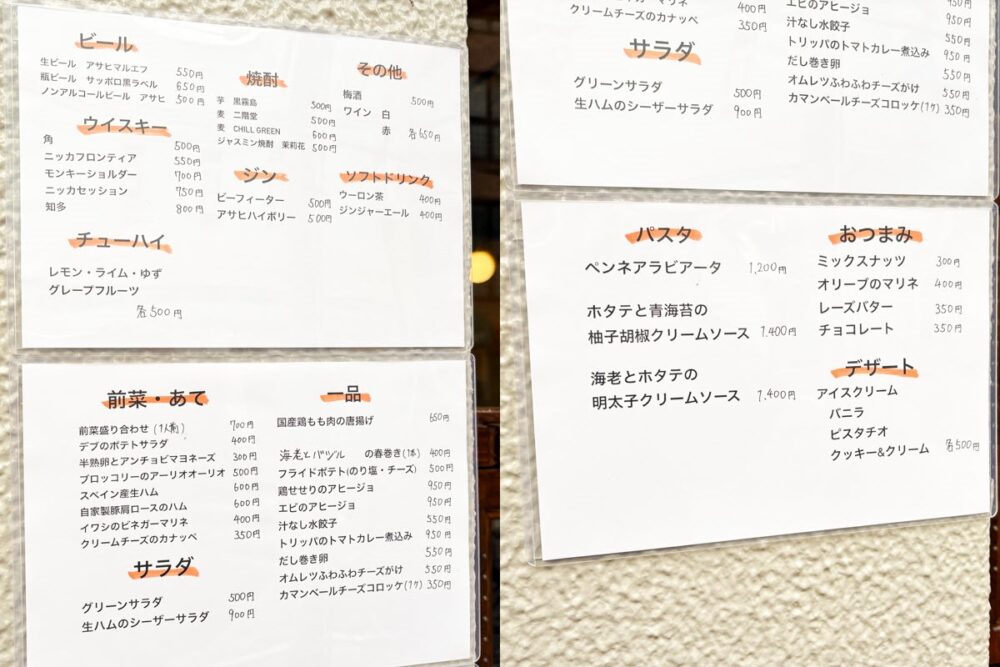 ビール
生ビール アサヒマルエフ 550円
瓶ビール サッポロ黒ラベル 650円
ノンアルコールビール アサヒ 500円
ウイスキー
角 500円
ニッカフロンティア 550円
モンキーショルダー 700円
ニッカセッション 750円
知多 800円
チューハイ
レモン・ライム・ゆず
グレープフルーツ
各500円
焼酎
芋 黒霧島 500円
麦 二階堂 500円
麦 CHILL GREEN 600円
ジャスミン焼酎 茉莉花 500円
ジン
ビーフィーター 500円
アサヒハイボリー 500円
その他
梅酒 500円
ワイン 白
赤 各650円
ソフトドリンク
ウーロン茶 400円
ジンジャーエール 400円
前菜・あて
前菜盛り合わせ(1人前) 700円
デブのポテトサラダ 400円
半熟卵とアンチョビマヨネーズ 300円
ブロッコリーのアーリオオーリオ 500円
スペイン産生ハム 600円
自家製豚肩ロースのハム 600円
イワシのビネガーマリネ 400円
クリームチーズのカナッペ 350円
サラダ
グリーンサラダ 500円
生ハムのシーザーサラダ 900円
一品
国産鶏もも肉の唐揚げ 650円
海老とバジル の春巻き(1本) 400円
フライドポテト(のり塩・チーズ) 500円
鶏せせりのアヒージョ 950円
エビのアヒージョ 950円
汁なし水餃子 550円
トリッパのトマトカレー煮込み 950円
だし巻き卵 550円
オムレツふわふわチーズがけ 550円
カマンベールチーズコロッケ(1ケ) 350円
400円
クリームチーズのカナッペ 350円
サラダ
グリーンサラダ 500円
生ハムのシーザーサラダ 900円
950円
エビのアヒージョ 950円
汁なし水餃子 550円
トリッパのトマトカレー煮込み 950円
だし巻き卵 550円
オムレツふわふわチーズがけ 550円
カマンベールチーズコロッケ(1ケ) 350円
パスタ
ペンネアラビアータ 1,200円
ホタテと青海苔の
柚子胡椒クリームソース 1,400円
海老とホタテの
明太子クリームソース 1,400円
おつまみ
ミックスナッツ 300円
オリーブのマリネ 400円
レーズバター 350円
チョコレート 350円
デザート
アイスクリーム
バニラ
ピスタチオ
クッキー&クリーム 各500円